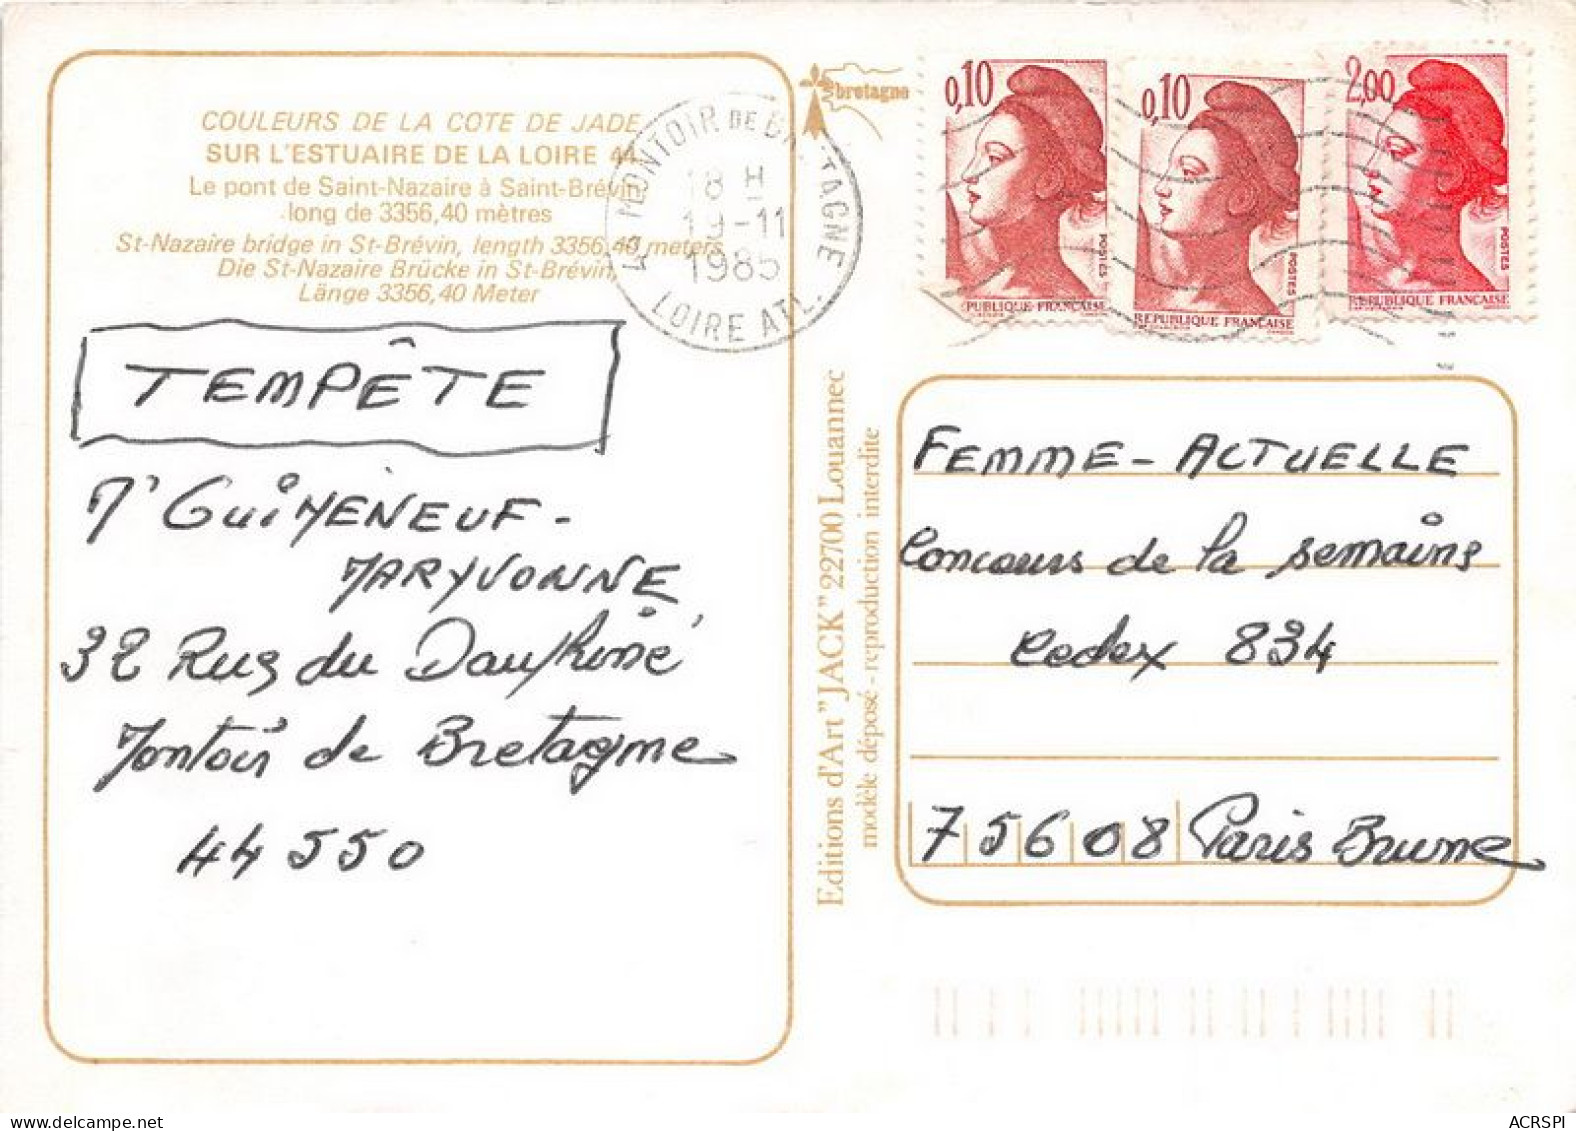 COULEURS DE LA COTE DE JADE
SUR L'ESTUAIRE DE LA LOIRE 44
Le pont de Saint-Nazaire à Saint-Brévin
long de 3356,40 mètres
St-Nazaire bridge in St-Brévin, length 3356,40 meters
Die St-Nazaire Brücke in St-Brévin,
Länge 3356,40 Meter
MONTOIR DE BRETAGNE
18 H
19-11
1985
LOIRE ATL.
bretagne
0,10
POSTES
PUBLIQUE FRANÇAISE
0,10
POSTES
REPUBLIQUE FRANÇAISE
2,00
POSTES
REPUBLIQUE FRANÇAISE
TEMPÊTE
M' GUIMENEUF -
MARYVONNE
32 Rue du Dauphiné
Montoir de Bretagne
44 550
Editions d'Art "JACK" 22700 Louannec
modèle déposé - reproduction interdite
FEMME - ACTUELLE
Concours de la semaine
Cedex 834
75608 Paris Brune
ACRSPI